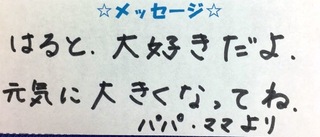 ☆メッセージ☆
はると、大好きだよ、
元気に大きくなってね、
パパ・ママより